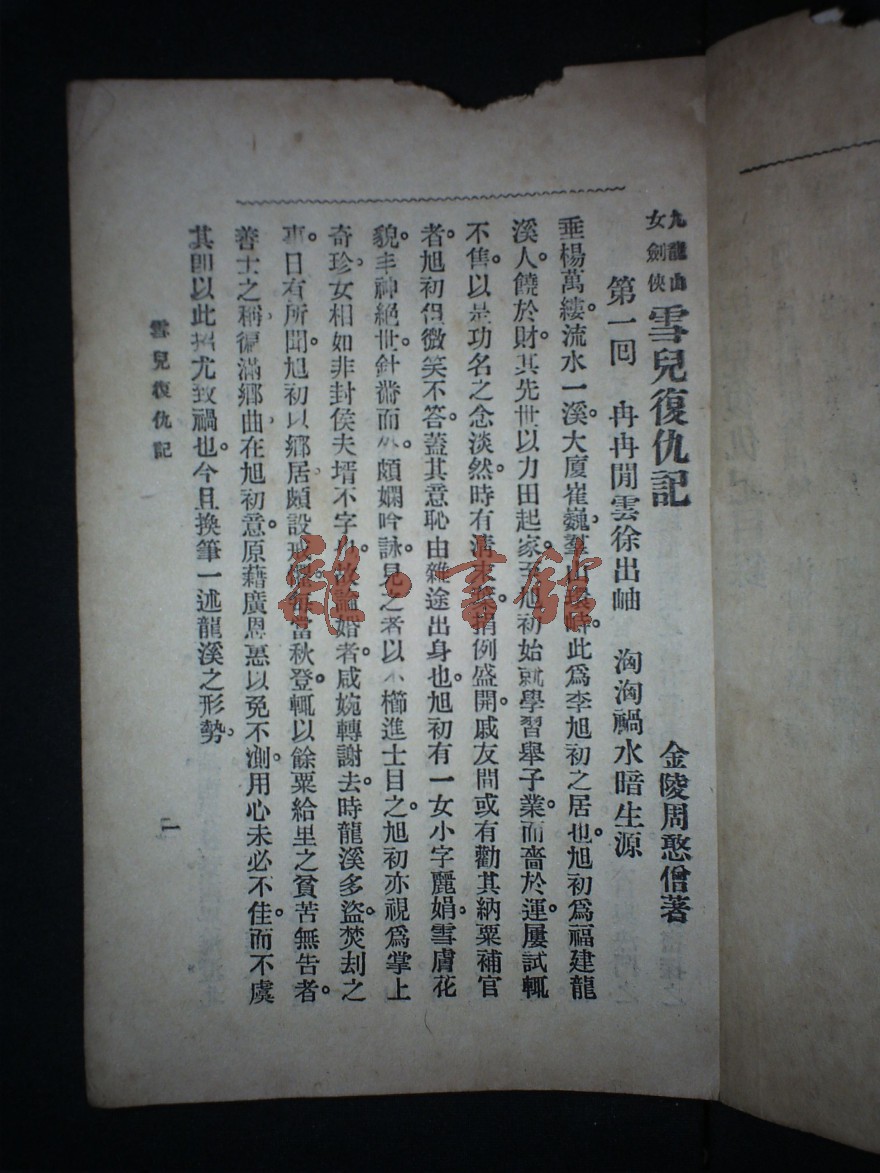 九龍山
女劍俠
雪兒復仇記
金陵周憨僧著
第一回　冉冉閒雲徐出岫　洶洶禍水暗生源
垂楊萬縷。流水一溪。大廈崔巍。羣山此爲李旭初之居也。旭初爲福建龍
溪人。饒於財。其先世以力田起家。至旭初始就學習舉子業。而嗇於運。屢試輒
不售。以是功名之念淡然。時有清末葉。捐例盛開。戚友間或有勸其納粟補官
者。旭初但微笑不答。蓋其意恥由雜途出身也。旭初有一女小字麗娟。雪膚花
貌。丰神絕世。針黹而外。頗嫻吟詠。見之者以不櫛進士目之。旭初亦視爲掌上
奇珍。女相如非封侯夫壻不字也。故議婚者。咸婉轉謝去。時龍溪多盜。焚刦之
事。日有所聞。旭初以鄉居頗設戒備。每當秋登。輒以餘粟給里之貧苦無告者。
善士之稱。徧滿鄉曲。在旭初意。原藉廣恩惠以免不測。用心未必不佳。而不虞
其即以此招尤致禍也。今且換筆一述龍溪之形勢。
雪兒復仇記
一